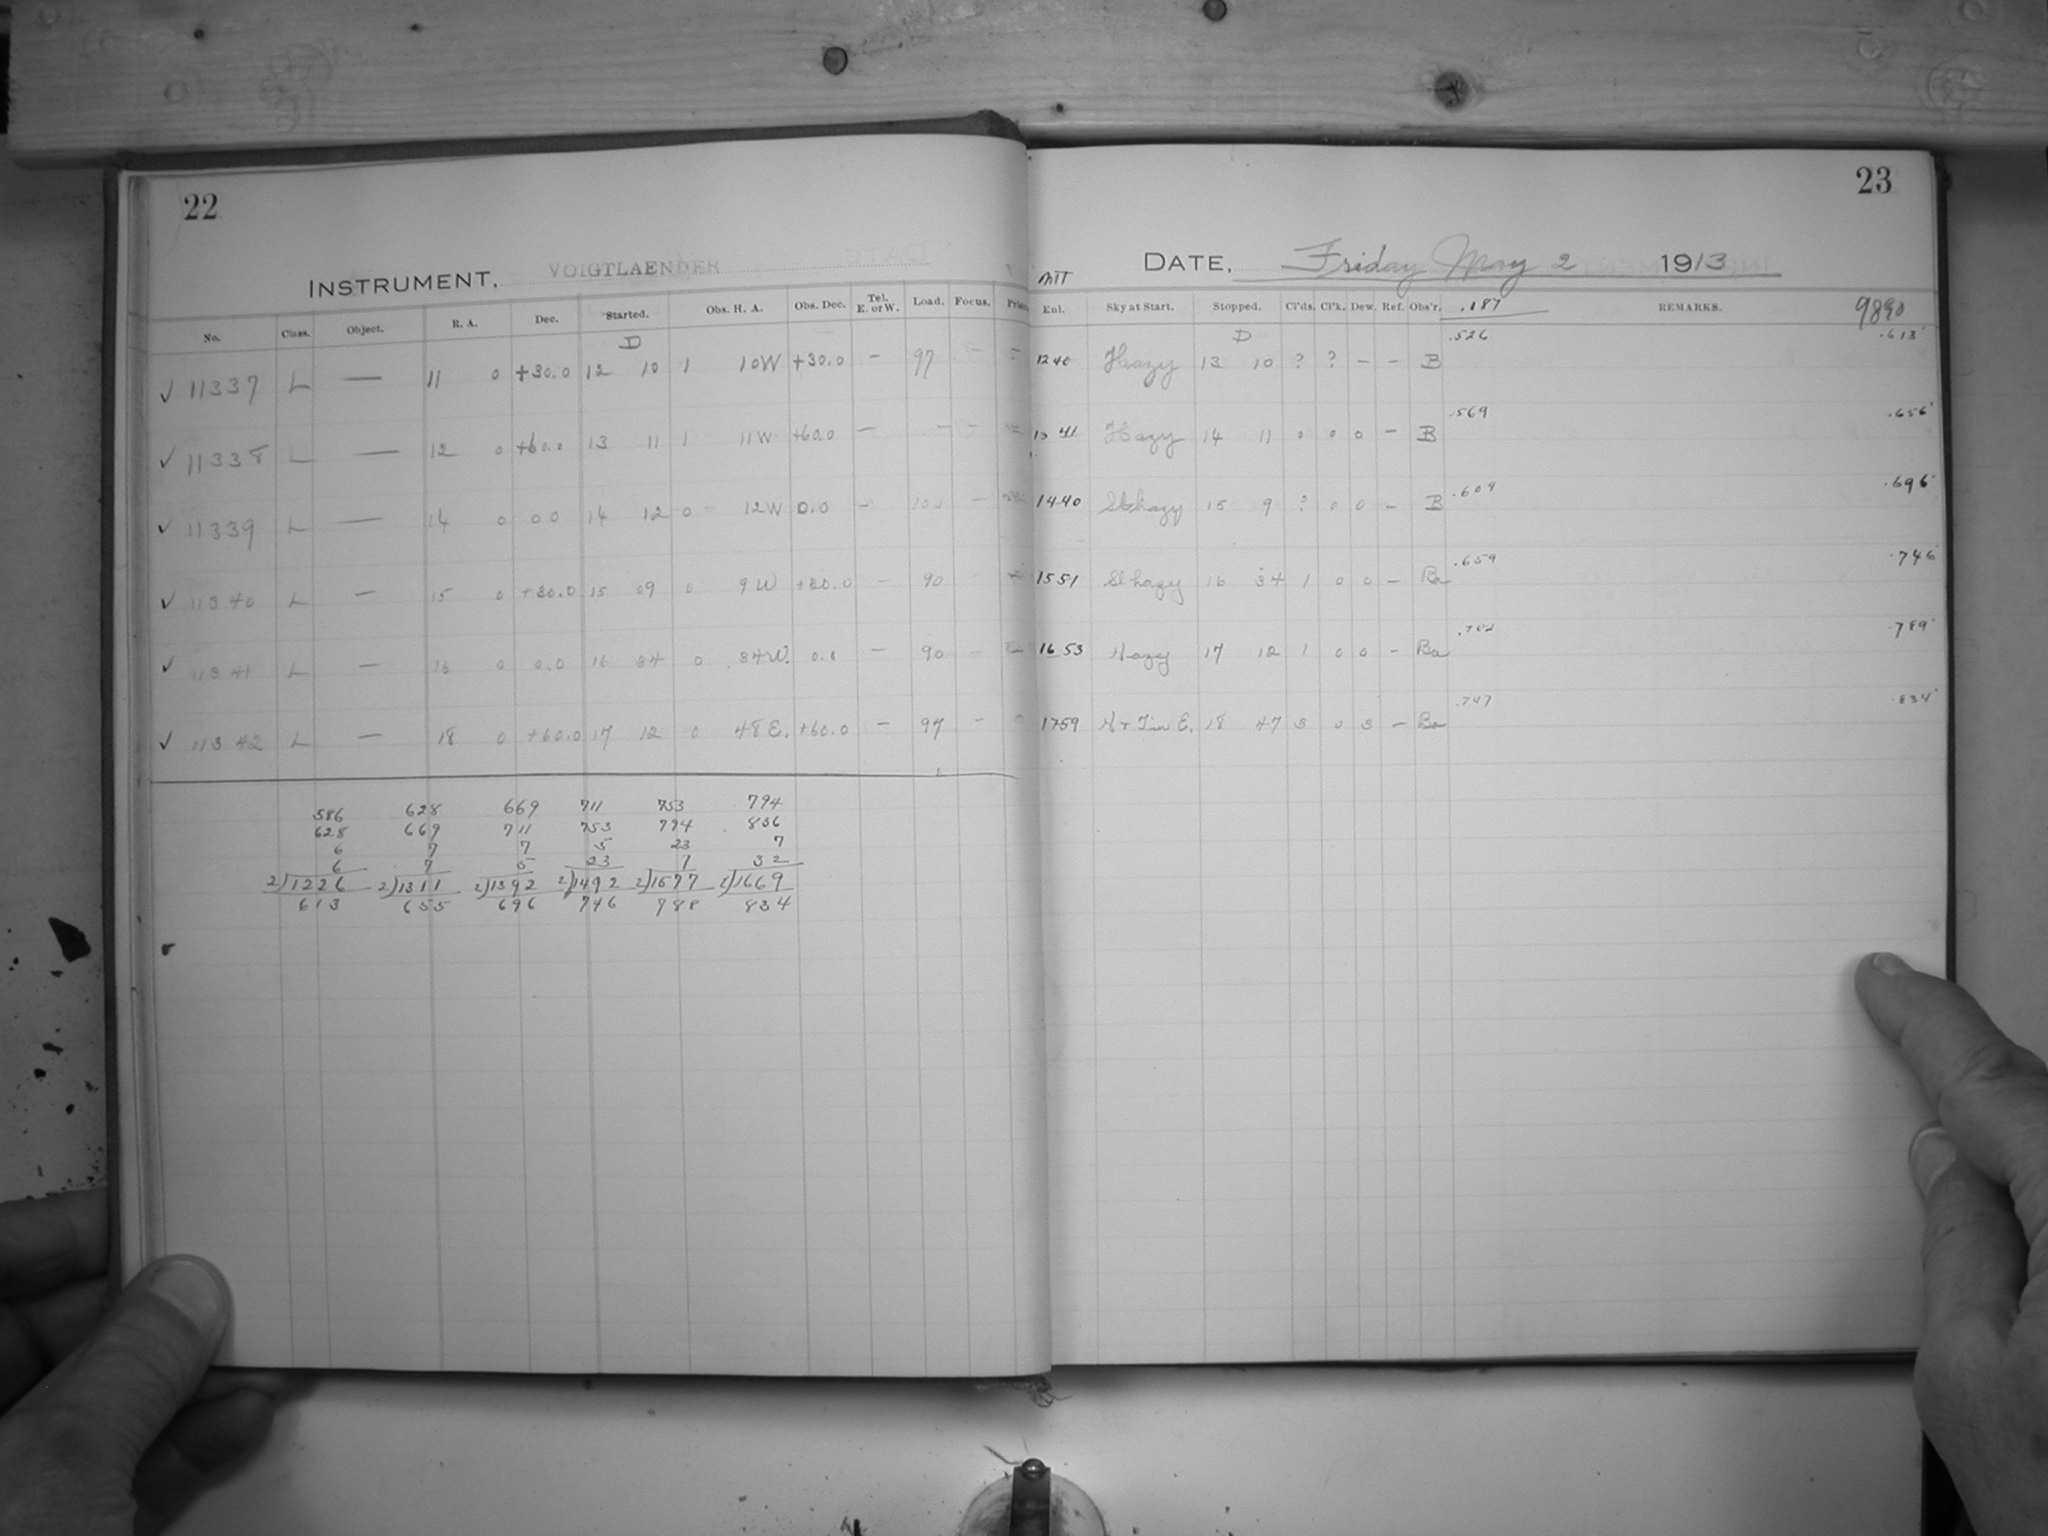 22
INSTRUMENT, VOIGTLAENDER
No. Class. Object. R. A. Dec. Started. Obs. H. A. Obs. Dec. Tel. E. or W. Load. Focus.
D
✓ 11337 L — 11 0 +30.0 12 10 1 10W +30.0 — 97 —
✓ 11338 L — 12 0 +60.0 13 11 1 11W +60.0 — — —
✓ 11339 L — 14 0 0 0 14 12 0 12W 0.0 — 100 —
✓ 11340 L — 15 0 +30.0 15 09 0 9W +30.0 — 90 —
✓ 11341 L — 16 0 0.0 16 34 0 34W. 0.0 — 90 —
✓ 11342 L — 18 0 +60.0 17 12 0 48E. +60.0 — 97 —
586 628 669 711 753 794
628 669 711 753 794 836
6 7 7 5 23 7
6 7 5 23 7 32
2)1226 2)1311 2)1392 2)1492 2)1577 2)1669
613 655 696 746 788 834
23
DATE, Friday May 2 1913
MTT
Enl. Sky at Start. Stopped. Cl'ds. Cl'k. Dew. Ref. Obs'r. .187 REMARKS. 9890
D
.526 .613
1240 Hazy 13 10 ? ? — — B
.569 .656
1341 Hazy 14 11 0 0 0 — B
.609 .696
1440 Sl. hazy 15 9 ? 0 0 — B
.659 .746
1551 Sl hazy 16 34 1 0 0 — Ba
.702 .789
1653 Hazy 17 12 1 0 0 — Ba
.747 .834
1759 18 47 3 0 3 — Ba